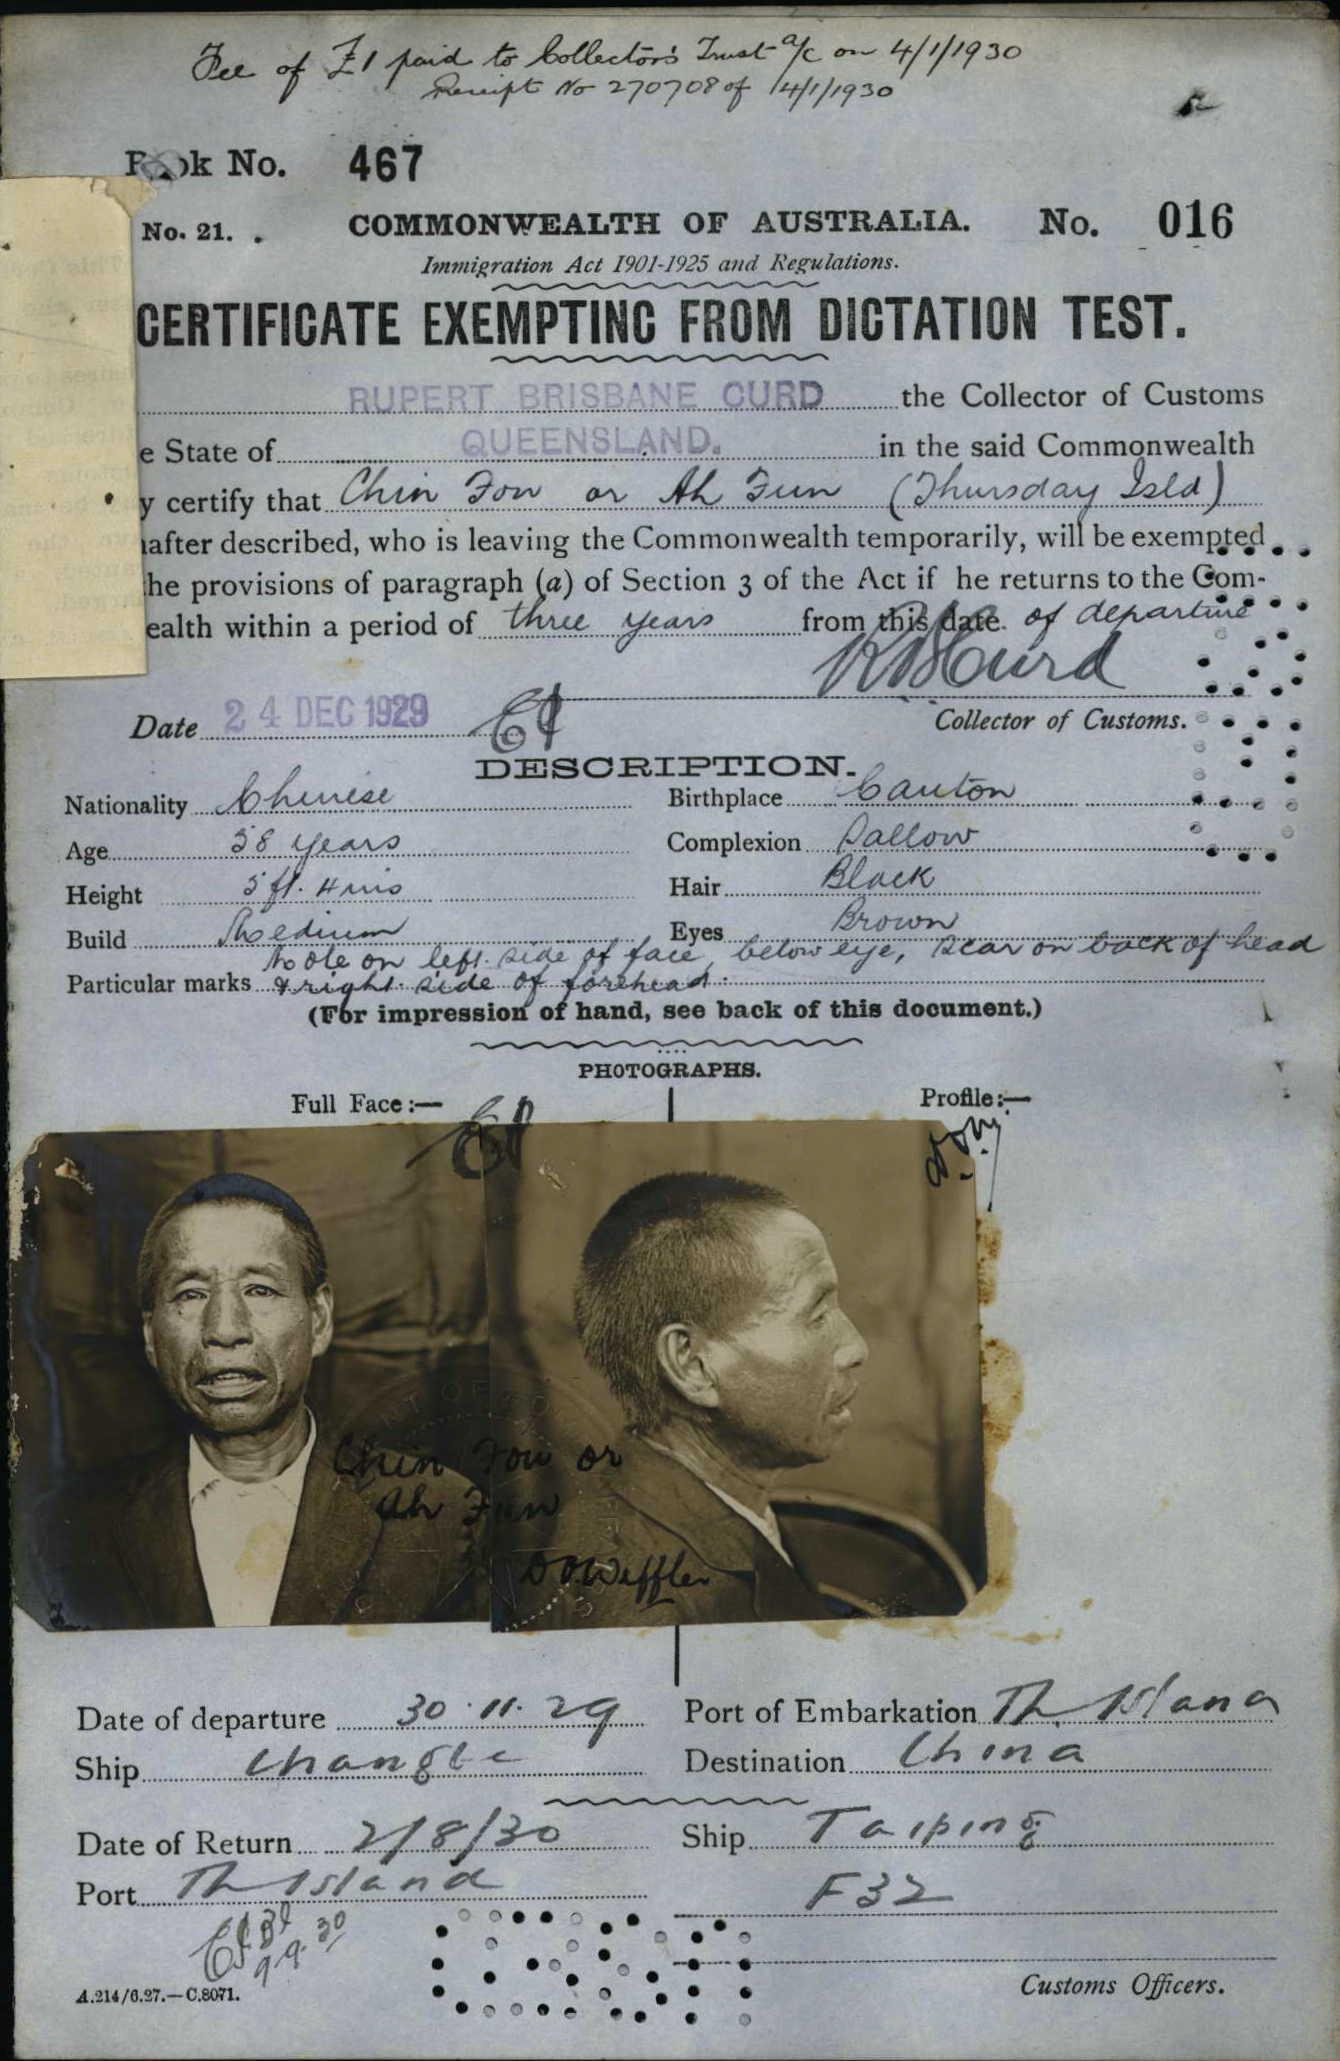 Fee of £1 paid to Collector's Trust a/c on 4/1/1930
Receipt No 270708 of 14/1/1930
Book No. 467
No. 21. COMMONWEALTH OF AUSTRALIA. No. 016
Immigration Act 1901-1925 and Regulations.
CERTIFICATE EXEMPTING FROM DICTATION TEST.
RUPERT BRISBANE CURD the Collector of Customs
e State of QUEENSLAND. in the said Commonwealth
y certify that Chin Fon or Ah Fun (Thursday Isld)
after described, who is leaving the Commonwealth temporarily, will be exempted
he provisions of paragraph (a) of Section 3 of the Act if he returns to the Com-
ealth within a period of three years from this date of departure
R B Curd
Date 24 DEC 1929 Collector of Customs.
DESCRIPTION.
Nationality Chinese Birthplace Canton
Age 58 years Complexion Sallow
Height 5 ft. 4 ins Hair Black
Build Medium Eyes Brown
Mole on left side of face, below eye, scar on back of head
Particular marks & right side of forehead.
(For impression of hand, see back of this document.)
PHOTOGRAPHS.
Full Face:— Profile:—
Chin Fon or
Ah Fun
Date of departure 30.11.29 Port of Embarkation Th Island
Ship Changte Destination China
Date of Return 2/8/30 Ship Taiping
Port Th Island F32
9.9.30
A.214/6.27.—C.8071. Customs Officers.